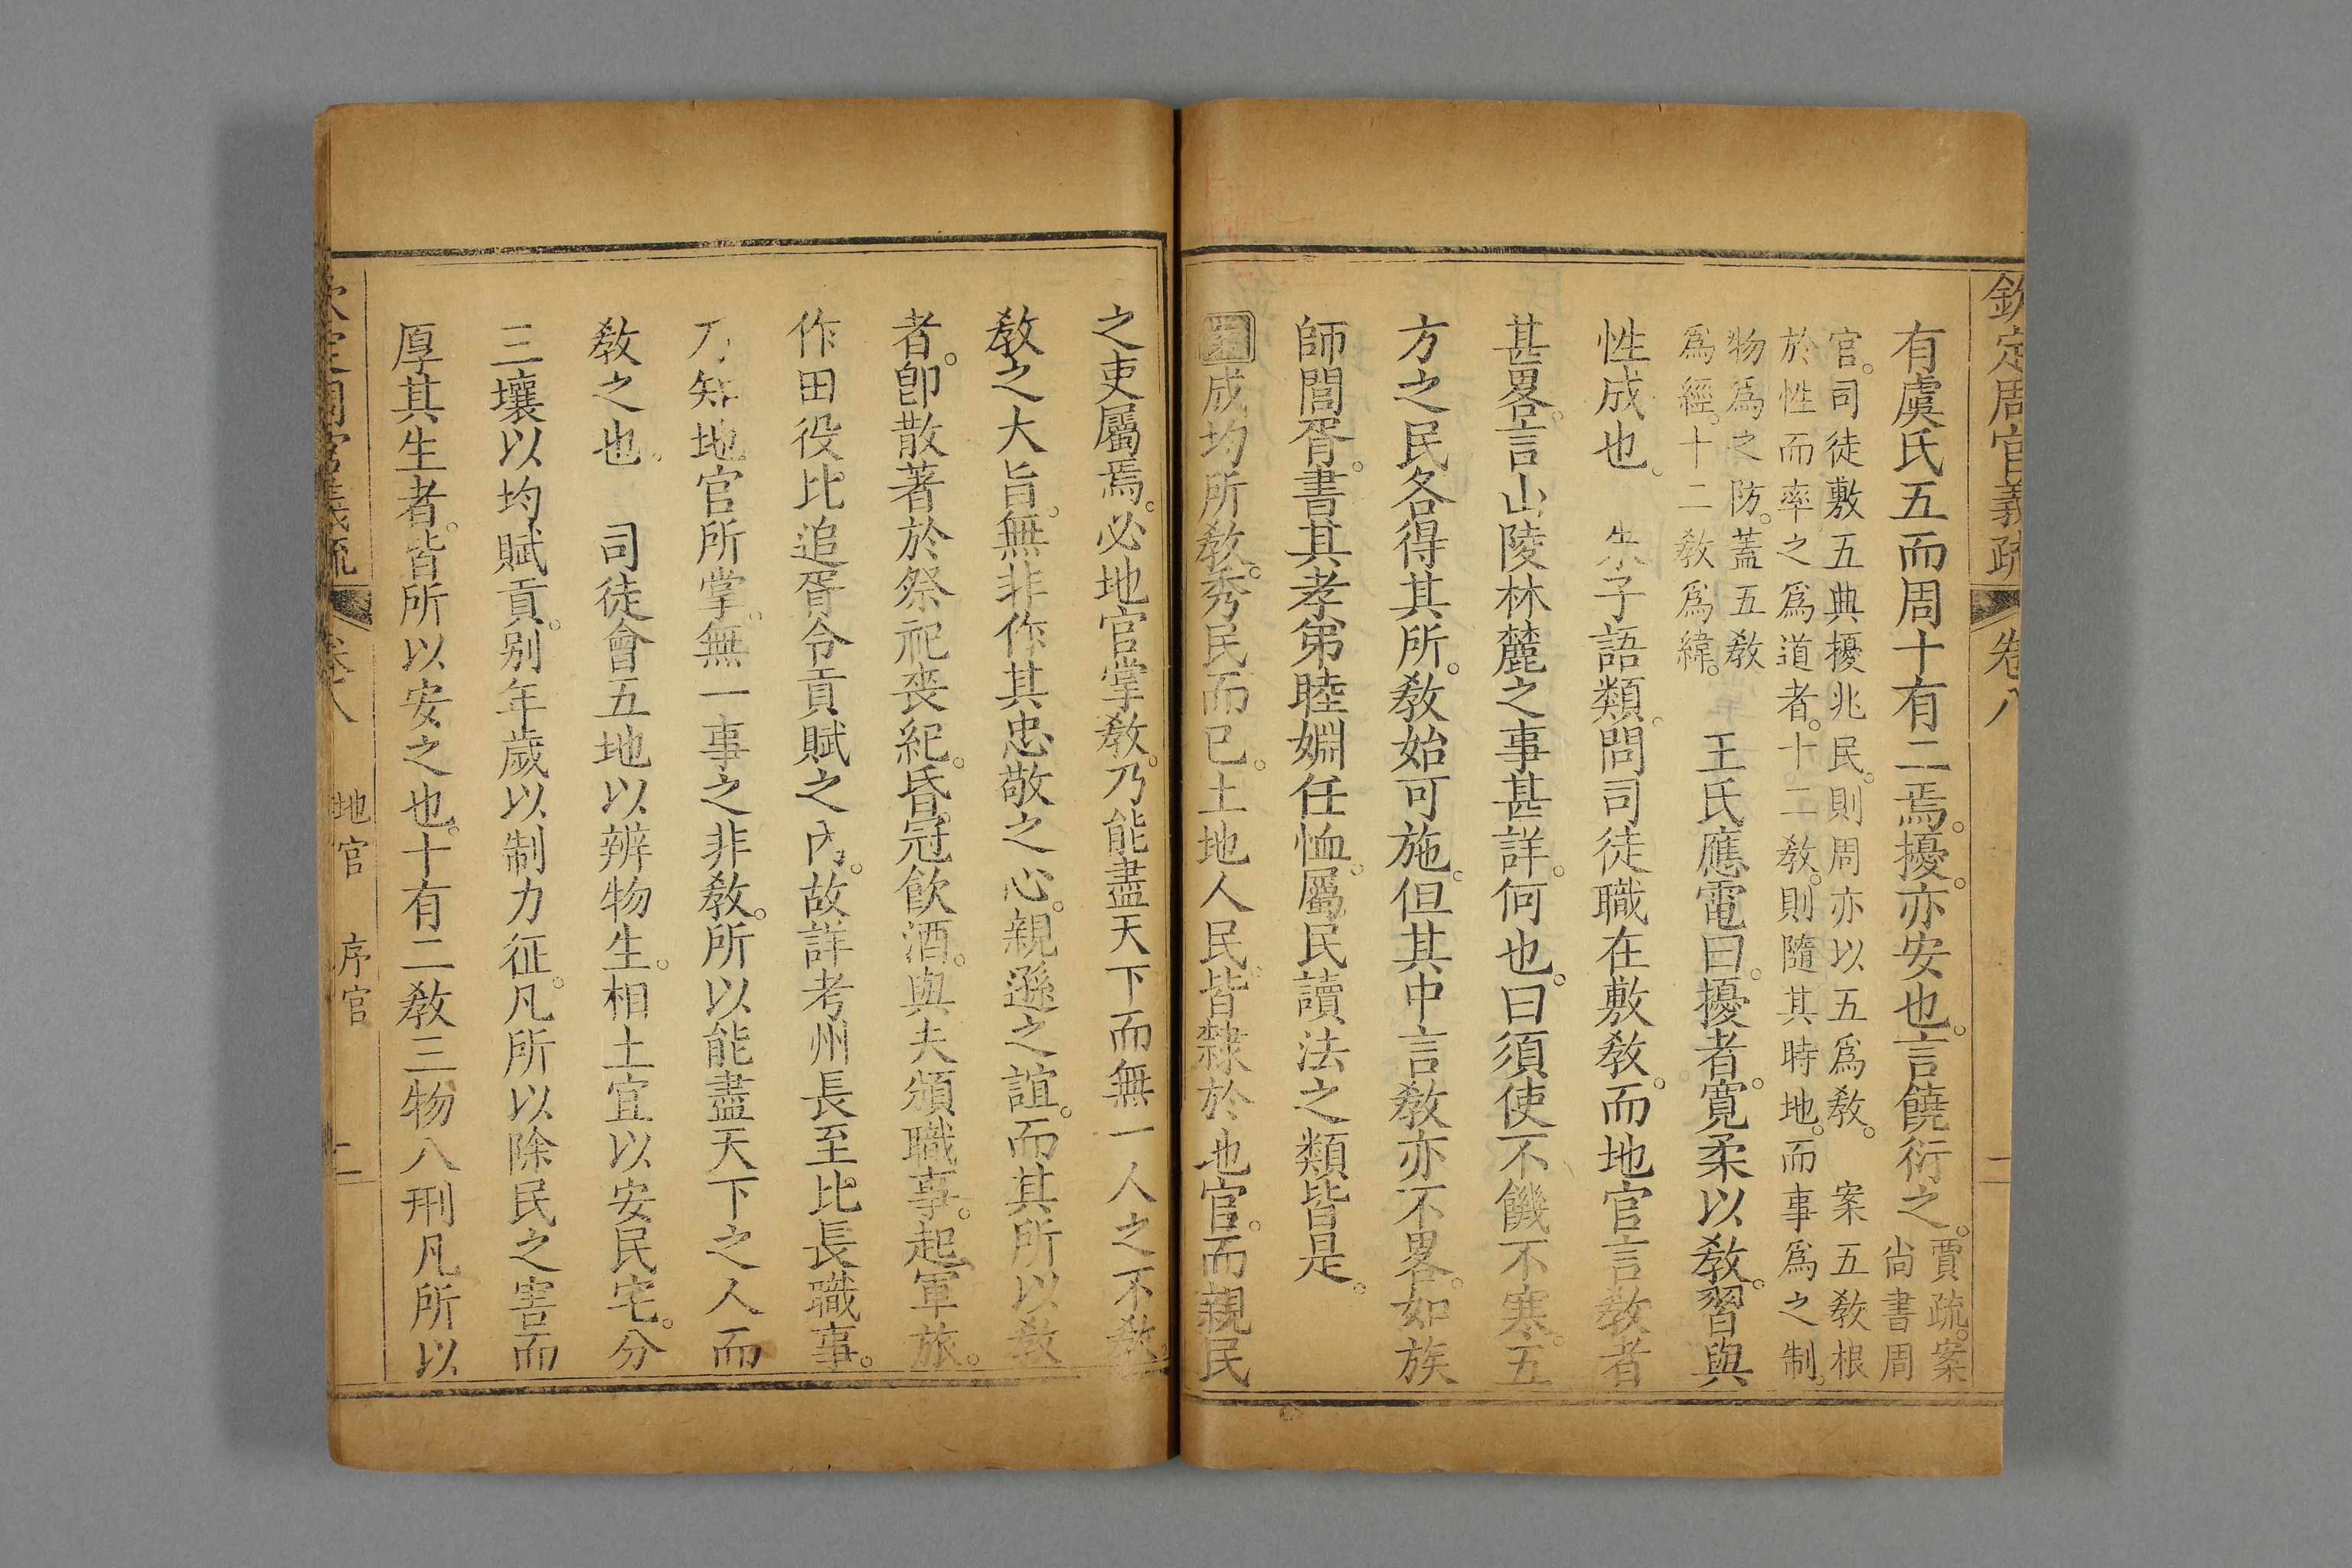 欽定周官義疏 卷八 二
有虞氏五而周十有二焉。擾。亦安也。言饒衍之。賈疏。案
尚書周
官。司徒敷五典擾兆民。則周亦以五爲敎。 案五敎根
於性而率之爲道者。十二敎。則隨其時地。而事爲之制。
物爲之防。蓋五敎
爲經。十二敎爲緯。
王氏應電曰。擾者。寬柔以敎。習與
性成也。 朱子語類。問司徒職在敷敎。而地官言敎者
甚畧。言山陵林麓之事甚詳。何也。曰須使不饑不寒。五
方之民各得其所。敎始可施。但其中言敎亦不畧。如族
師閭胥。書其孝弟睦婣任恤。屬民讀法之類皆是。
成均所敎。秀民而已。土地人民。皆隸於地官。而親民
之吏屬焉。必地官掌敎。乃能盡天下而無一人之不敎。
敎之大旨。無非作其忠敬之心。親遜之誼。而其所以敎
者。卽散著於祭祀喪紀。昏冠飲酒。與夫頒職事。起軍旅。
作田役比追胥令貢賦之內。故詳考州長至比長職事。
乃知地官所掌。無一事之非敎。所以能盡天下之人而
敎之也。 司徒會五地以辨物生。相土宜以安民宅。分
三壤以均賦貢。別年歲以制力征。凡所以除民之害而
厚其生者。皆所以安之也。十有二敎三物八刑凡所以
欽定周官義疏 卷八 地官 序官 二